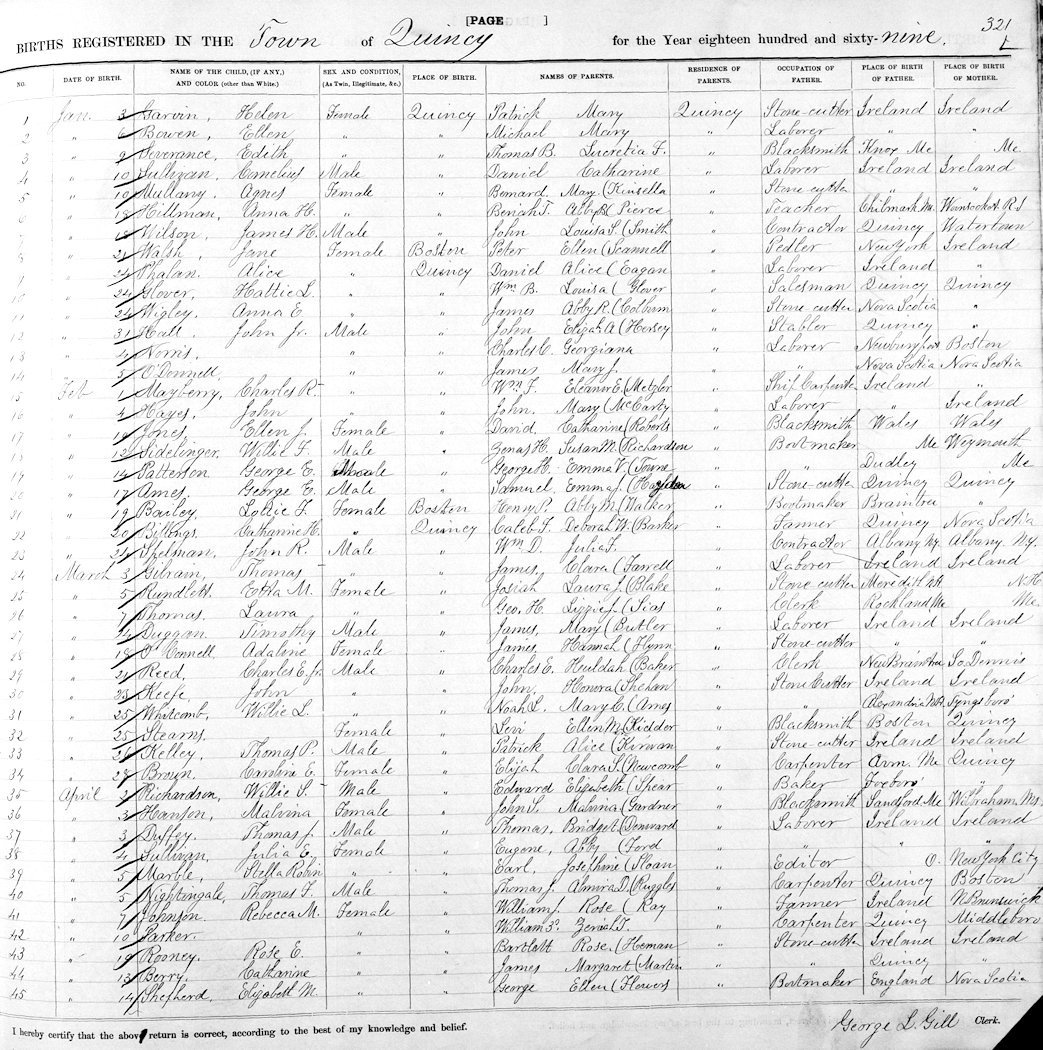 [PAGE ] 321
BIRTHS REGISTERED IN THE Town of Quincy for the Year eighteen hundred and sixty-nine.
NO. DATE OF BIRTH. NAME OF THE CHILD, (IF ANY,) AND COLOR (other than White.) SEX AND CONDITION, (As Twin, Illegitimate, &c.) PLACE OF BIRTH. NAMES OF PARENTS. RESIDENCE OF PARENTS. OCCUPATION OF FATHER. PLACE OF BIRTH OF FATHER. PLACE OF BIRTH OF MOTHER.
1 Jan. 3 Garvin, Helen Female Quincy Patrick Mary Quincy Stone-cutter Ireland Ireland
2 " 6 Bowen, Ellen " " Michael Mary " Laborer " "
3 " 9 Severance, Edith " " Thomas B. Lucretia F. " Blacksmith Knox Me Me.
4 " 10 Sullivan, Cornelius Male " Daniel Catharine " Laborer Ireland Ireland
5 " 10 Mullany, Agnes Female " Bernard, Mary (Kinsella " Stone-cutter " "
6 " 18 Hillman, Anna H. " " Beriah T. Abby (Pierce " Teacher Chilmark Woonsocket R.I
7 " 18 Wilson, James H. Male " John Louisa S. (Smith " Contractor Quincy Watertown
8 " 21 Walsh, Jane Female Boston Peter Ellen (Scannell " Pedler New York Ireland
9 " 24 Phalan. Alice " Quincy Daniel Alice (Eagan " Laborer Ireland "
10 " 24 Glover, Hattie L. " " Wm B. Louisa (Glover " Salesman Quincy Quincy
11 " 24 Wigley, Anna E " " James Abby R. (Colburn " Stone cutter Nova Scotia "
12 " 31 Hall, John Jr. Male " John Elizah A (Hersey " Stabler Quincy "
13 " 4 Norris, " " Charles C. Georgiana " Laborer Newburyport Boston
14 " 5 O'Donnell, " " James Mary J. " " Nova Scotia Nova Scotia
15 Feb 1 Mayberry, Charles R. " " Wm F. Eleanor E. (Metzler " Ship Carpenter Ireland "
16 " 4 Hayes, John " " John. Mary (McCarty " Laborer " Ireland
17 " 10 Jones, Ellen J. Female " David Catharine (Roberts " Blacksmith Wales Wales
18 " 12 Sidelinger, Willie F. Male " Zenas H. Susan M (Richardson " Bootmaker Me Weymouth
19 " 14 Patterson George E. Male " George H. Emma V. (Towne " " Dudley Me
20 " 17 Ames, George E. Male " Samuel Emma J. (Hayden " Stone-cutter Quincy Quincy
21 " 19 Bailey, Lottie F. Female Boston Henry P. Abby M. (Walker " Bootmaker Braintree "
22 " 20 Billings, Catharine H. " Quincy Caleb F. Deborah W. (Barker " Tanner Quincy Nova Scotia
23 " 24 Spelman, John R. Male " Wm D. Julia F. " Contractor Albany Ny. Albany Ny.
24 March 3 Gilrain, Thomas " " James, Clara (Farrell " Laborer Ireland Ireland
25 " 5 Rundlett, Etta M. Female " Josiah Laura J. (Blake " Stone cutter Meredith NH N.H.
26 " 7 Thomas, Laura " " Geo. H. Lizzie J. (Sias " Clerk Rockland Me Me.
27 " 14 Duggan, Timothy Male " James, Mary (Butler " Laborer Ireland Ireland
28 " 18 O'Connell, Adaline Female " James, Hannah (Flynn " Stone-cutter " "
29 " 21 Reed, Charles E. Jr. Male " Charles E. Huldah (Baker " Clerk New Braintree So. Dennis
30 " 23 Keefe, John " " John, Honora (Shehan " Stone Cutter Ireland Ireland
31 " 25 Whitcomb, Willie L. " " Noah L. Mary C. (Ames " " Alexandria N.H. Tyngsboro'
32 " 25 Stearns, Female " Levi Ellen M. (Kidder " Blacksmith Boston Quincy
33 " 26 Kelley, Thomas P. Male " Patrick Alice (Kirwan " Stone-cutter Ireland Ireland
34 " 28 Brown, Caroline E. Female " Elijah Clara S. (Newcomb " Carpenter Me Quincy
35 April 2 Richardson, Willie S. Male " Edward Elizabeth (Spear " Baker Foxboro' "
36 " 3 Hanson, Malvina Female " John S. Malvina (Gardner " Blacksmith Sandford Me Wilbraham, Ms.
37 " 3 Duffey, Thomas J. Male " Thomas, Bridget (Denward " Laborer Ireland Ireland
38 " 4 Sullivan, Julia E. Female " Eugene, Abby (Ford " " " "
39 " 5 Marble, Stella Robin " " Earl, Josephine (Sloan " Editor O. New York City
40 " 5 Nightingale, Thomas F. Male " Thomas J. Almira D. (Ruggles " Carpenter Quincy Boston
41 " 7 Johnson, Rebecca M. Female " William J. Rose (Ray " Tanner Ireland N. Brunswick
42 " 10 Parker. " " William Zeviah T. " Carpenter Quincy Middleboro
43 " 19 Rooney, Rose E. " " Bartlott Rose. (Heman " Stone-cutter Ireland Ireland
44 " 13 Berry, Catharine " " James Margaret (Marten " " Quincy "
45 " 14 Shepherd, Elizabeth M. " " George Ellen (Flowers " Bootmaker England Nova Scotia
I hereby certify that the above return is correct, according to the best of my knowledge and belief. George L. Gill Clerk.